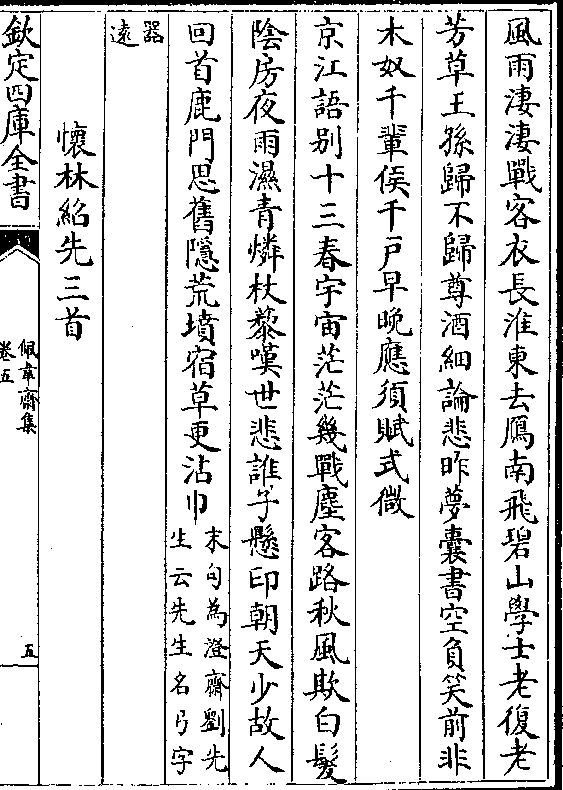 風雨淒淒戰客衣長淮東去鴈南飛碧山學士老復老
芳草王孫歸不歸尊酒細論悲昨夢囊書空負笑前非
木奴千輩侯千戸早晩應須賦式微
京江語别十三春宇宙茫茫幾戰塵客路秋風欺白髮
陰房夜雨濕青燐杖藜嘆世悲誰子懸印朝天少故人
回首鹿門思舊隱荒墳宿草更沾巾
末句為澄齋劉先
生云先生名弓字
器
遠
懷林紹先三首
欽定四庫全書
佩韋齋集
卷五
五